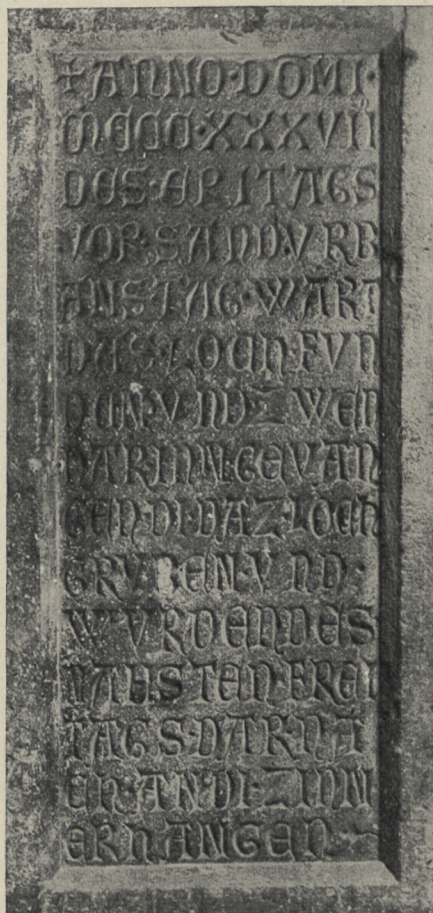 +ANNO·DOMI·
MCCCC·XXXVII
DES·ERITAGS
VOR·SAND·VRB
ANSTAG·WART
DAS·LOCH·FVN
DEN·VND·ZWEN
DARINN·GEVAN
GEN·DI·DAZ·LOCH
GRVBEN·VND·
WVRDEN·DES
NAHSTEN·FREI
TAGS·DARNA
EN·AN·DI·ZINN
ERHANGEN